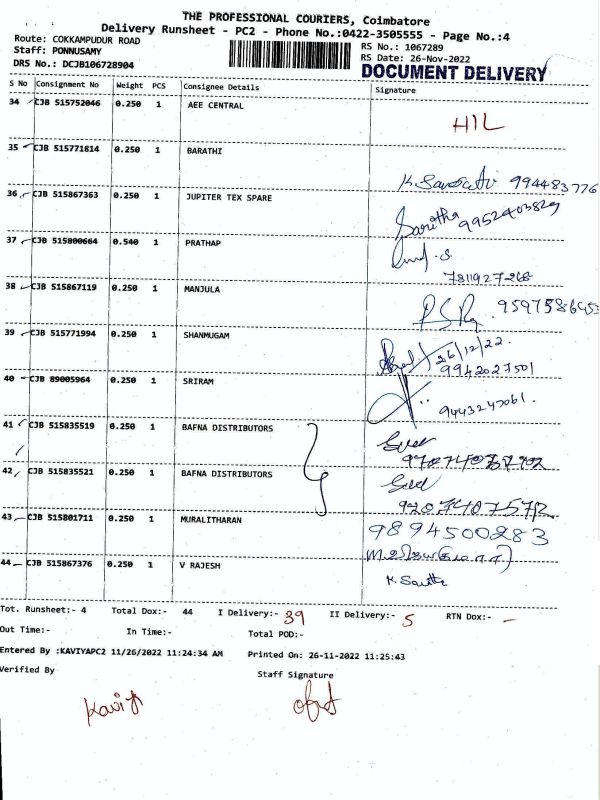 THE PROFESSIONAL COURIERS, Coimbatore
Delivery Runsheet - PC2 - Phone No.:0422-3505555 - Page No.:4
Route: COKKAMPUDUR ROAD
Staff: PONNUSAMY
DRS No.: DCJB106728904
RS No.: 1067289
RS Date: 26-Nov-2022
DOCUMENT DELIVERY
S No Consignment No Weight PCS Consignee Details Signature
34 CJB 515752046 0.250 1 AEE CENTRAL HIL
35 CJB 515771814 0.250 1 BARATHI
994483776
36 CJB 515867363 0.250 1 JUPITER TEX SPARE Saritha
9952403829
37 CJB 515800664 0.540 1 PRATHAP
7811927268
38 CJB 515867119 0.250 1 MANJULA
39 CJB 515771994 0.250 1 SHANMUGAM 26/12/22.
9942027501
40 CJB 89005964 0.250 1 SRIRAM
9443247061.
41 CJB 515835519 0.250 1 BAFNA DISTRIBUTORS
42 CJB 515835521 0.250 1 BAFNA DISTRIBUTORS
43 CJB 515801711 0.250 1 MURALITHARAN 9894500283
44 CJB 515867376 0.250 1 V RAJESH
Tot. Runsheet:- 4 Total Dox:- 44 I Delivery:- 39 II Delivery:- 5 RTN Dox:- -
Out Time:- In Time:- Total POD:-
Entered By :KAVIYAPC2 11/26/2022 11:24:34 AM Printed On: 26-11-2022 11:25:43
Verified By Staff Signature